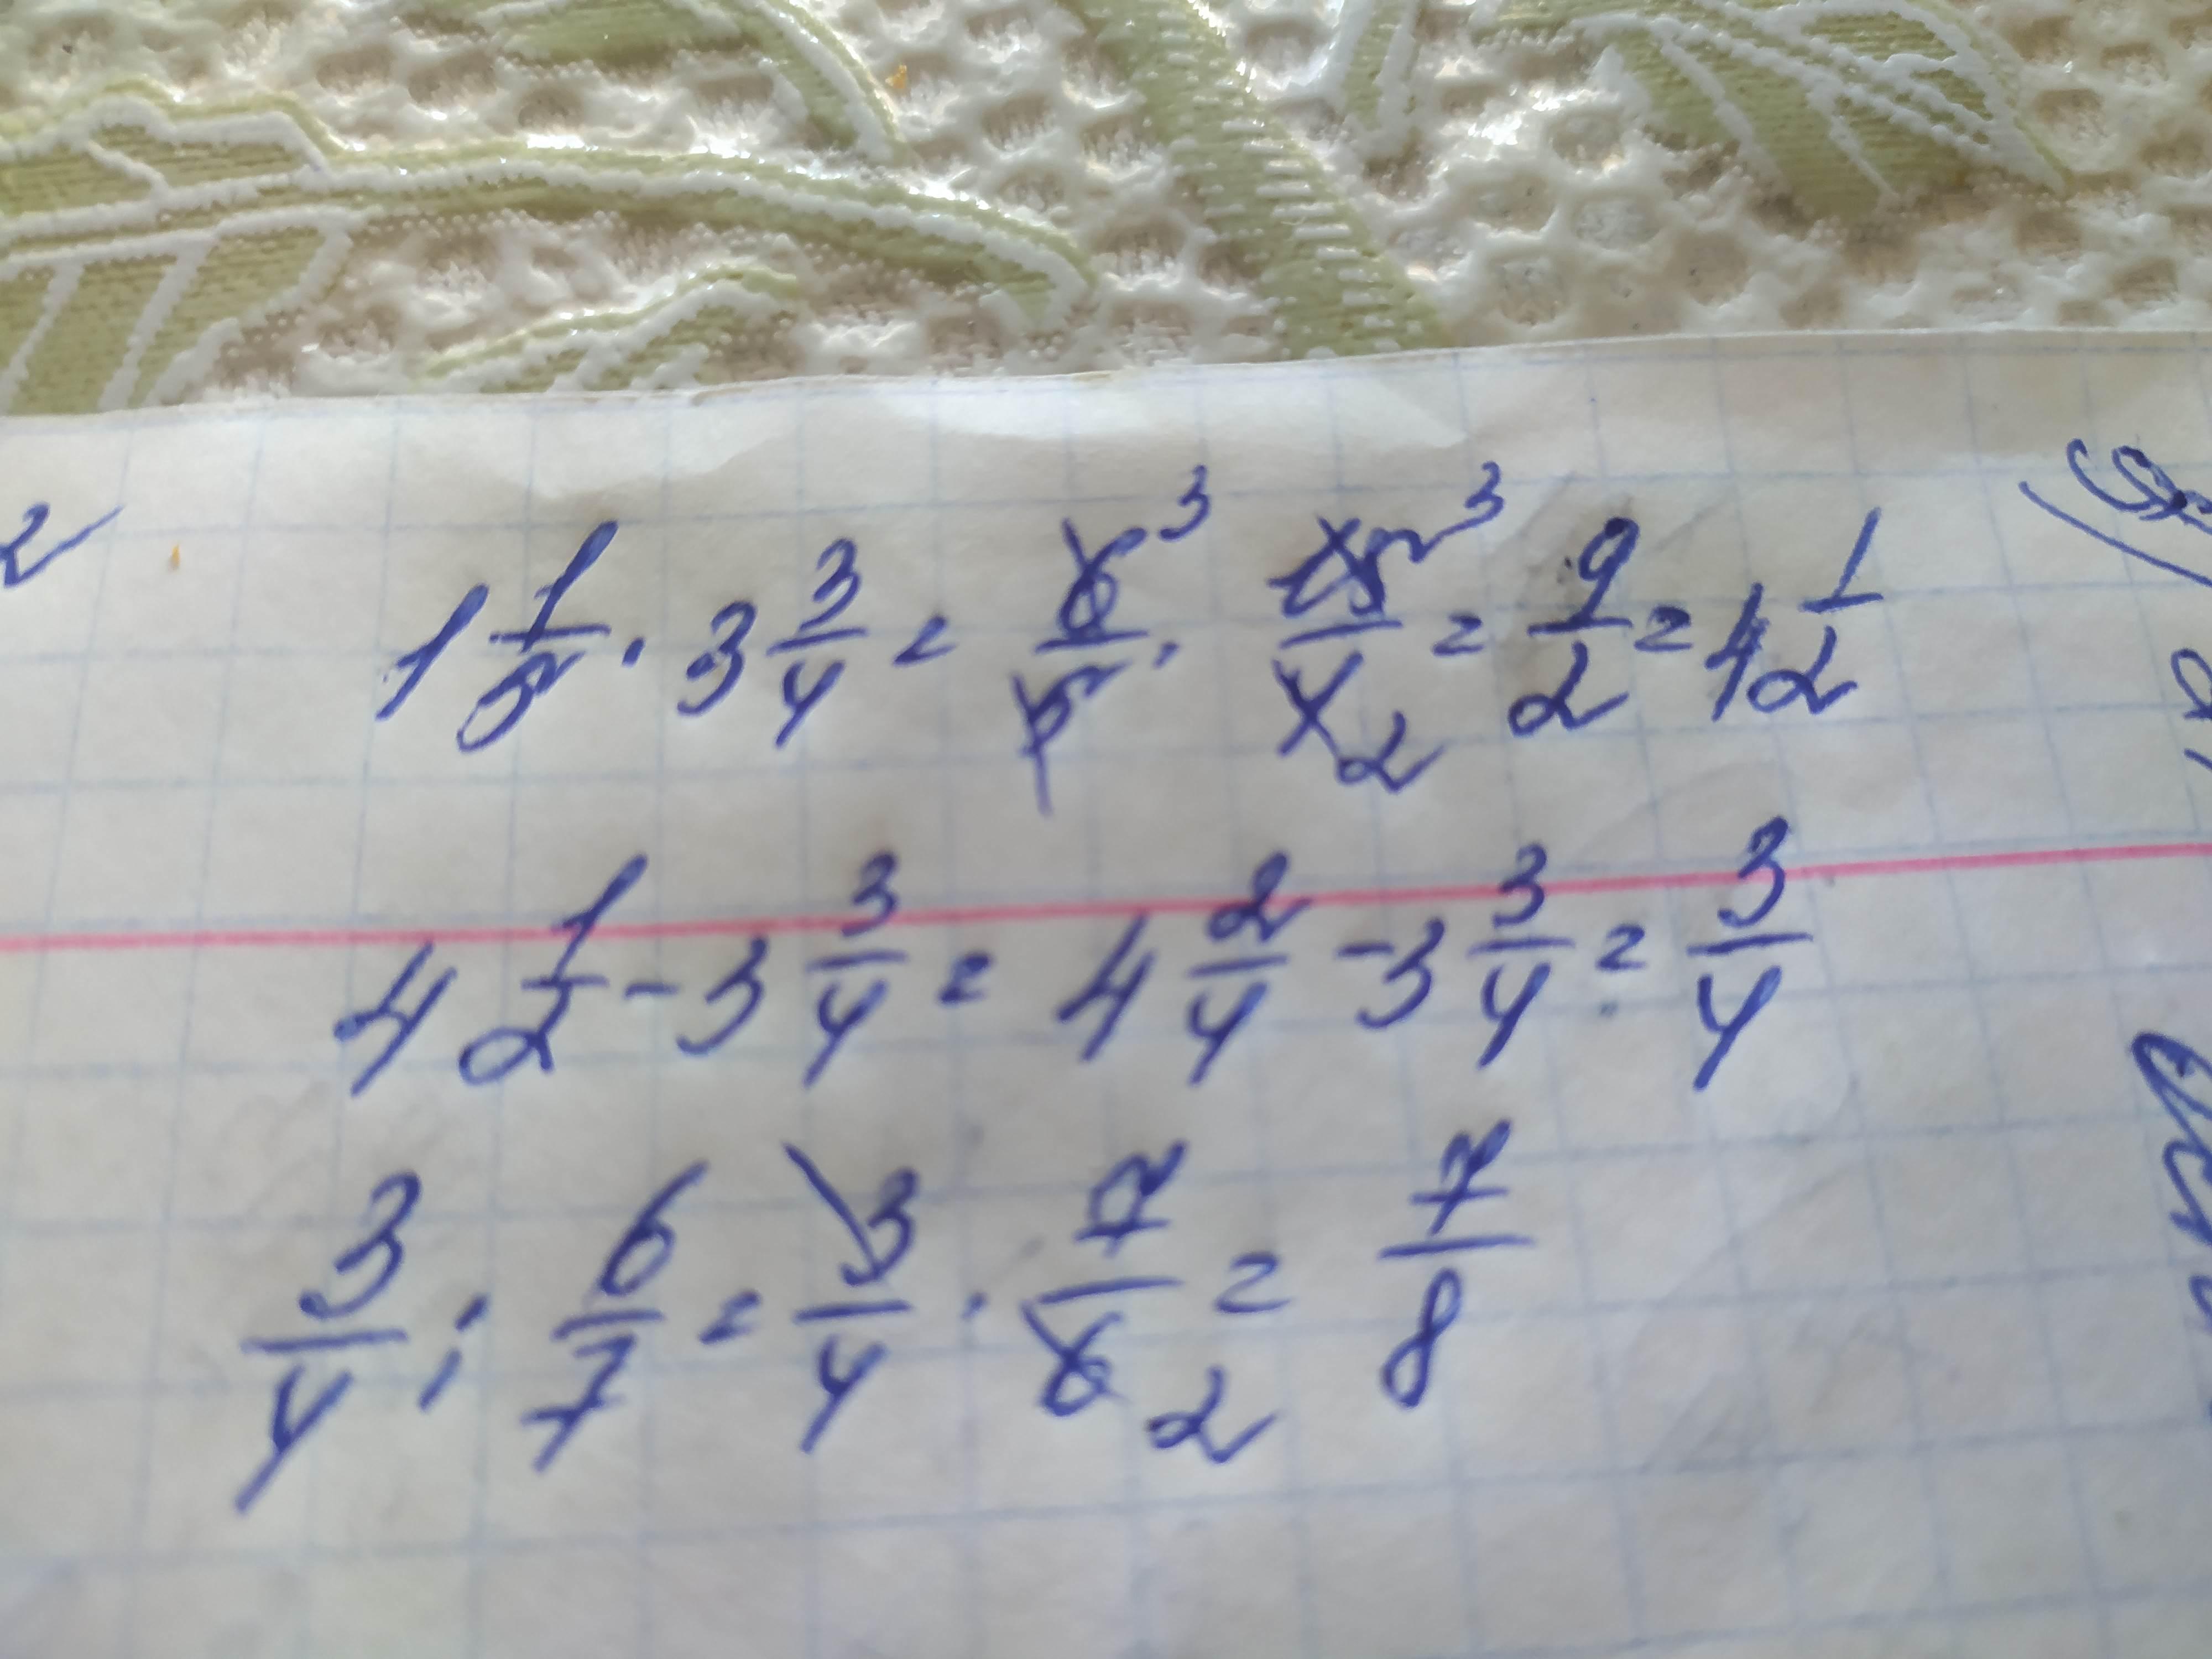 1 1/5 · 3 3/4 = 6/5 3 · 15/4 3 2 = 9/2 = 4 1/2
4 1/2 - 3 3/4 = 4 2/4 - 3 3/4 = 3/4
3/4 : 6/7 = 3/4 · 7/6 2 = 7/8